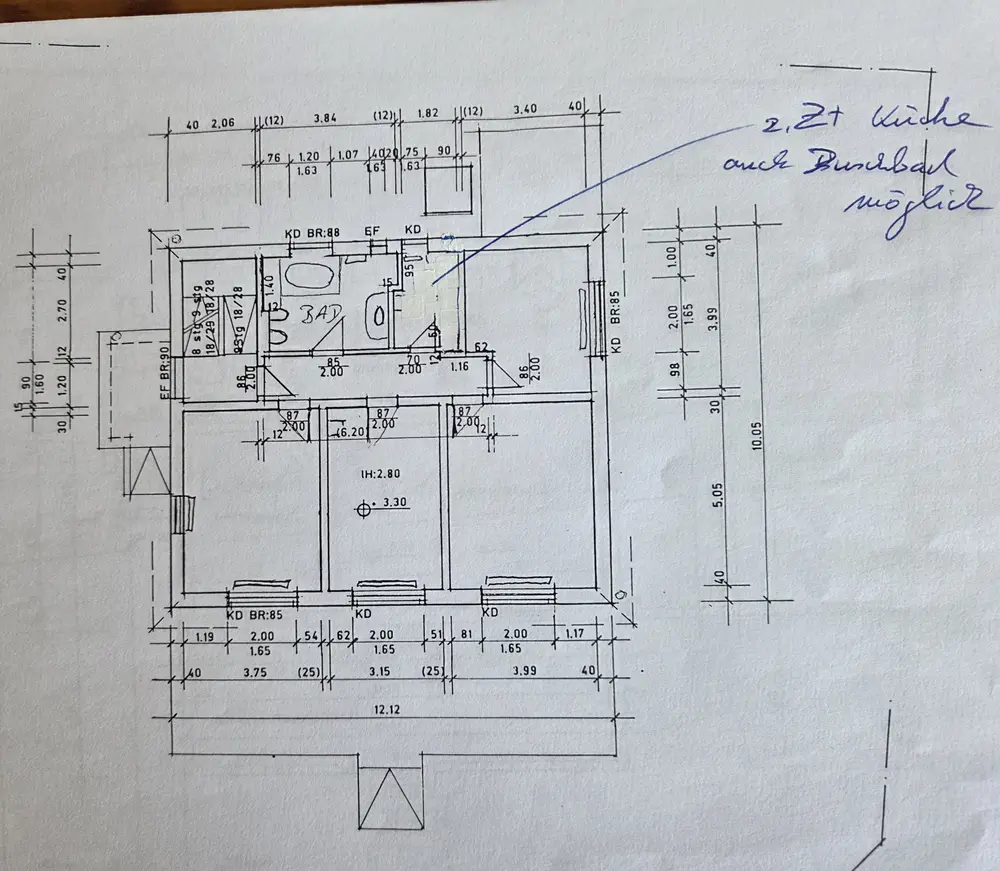 z.Zt Küche
auch Duschbad
möglich
40 2.06 (12) 3.84 (12) 1.82 (12) 3.40 40
76 1.20 1.07 40 20 75 90
1.63 1.63 1.63
KD BR:88 EF KD
40 2.70 12 1.20 30
15 90 1.60
8 stg 9 stg
18/29 18/28
9Stg 18/28
EF BR:90
1.40
12
BAD
15
95
60
12
85
2.00
70
2.00
1.16
62
86
2.00
86
2.00
KD BR:85
1.00 2.00 98
1.65
40 3.99 30 5.05 40
10.05
87
2.00
87
2.00
87
2.00
12 (6.20) 12
IH:2.80
3.30
KD BR:85 KD KD
1.19 2.00 54 62 2.00 51 81 2.00 1.17
1.65 1.65 1.65
40 3.75 (25) 3.15 (25) 3.99 40
12.12